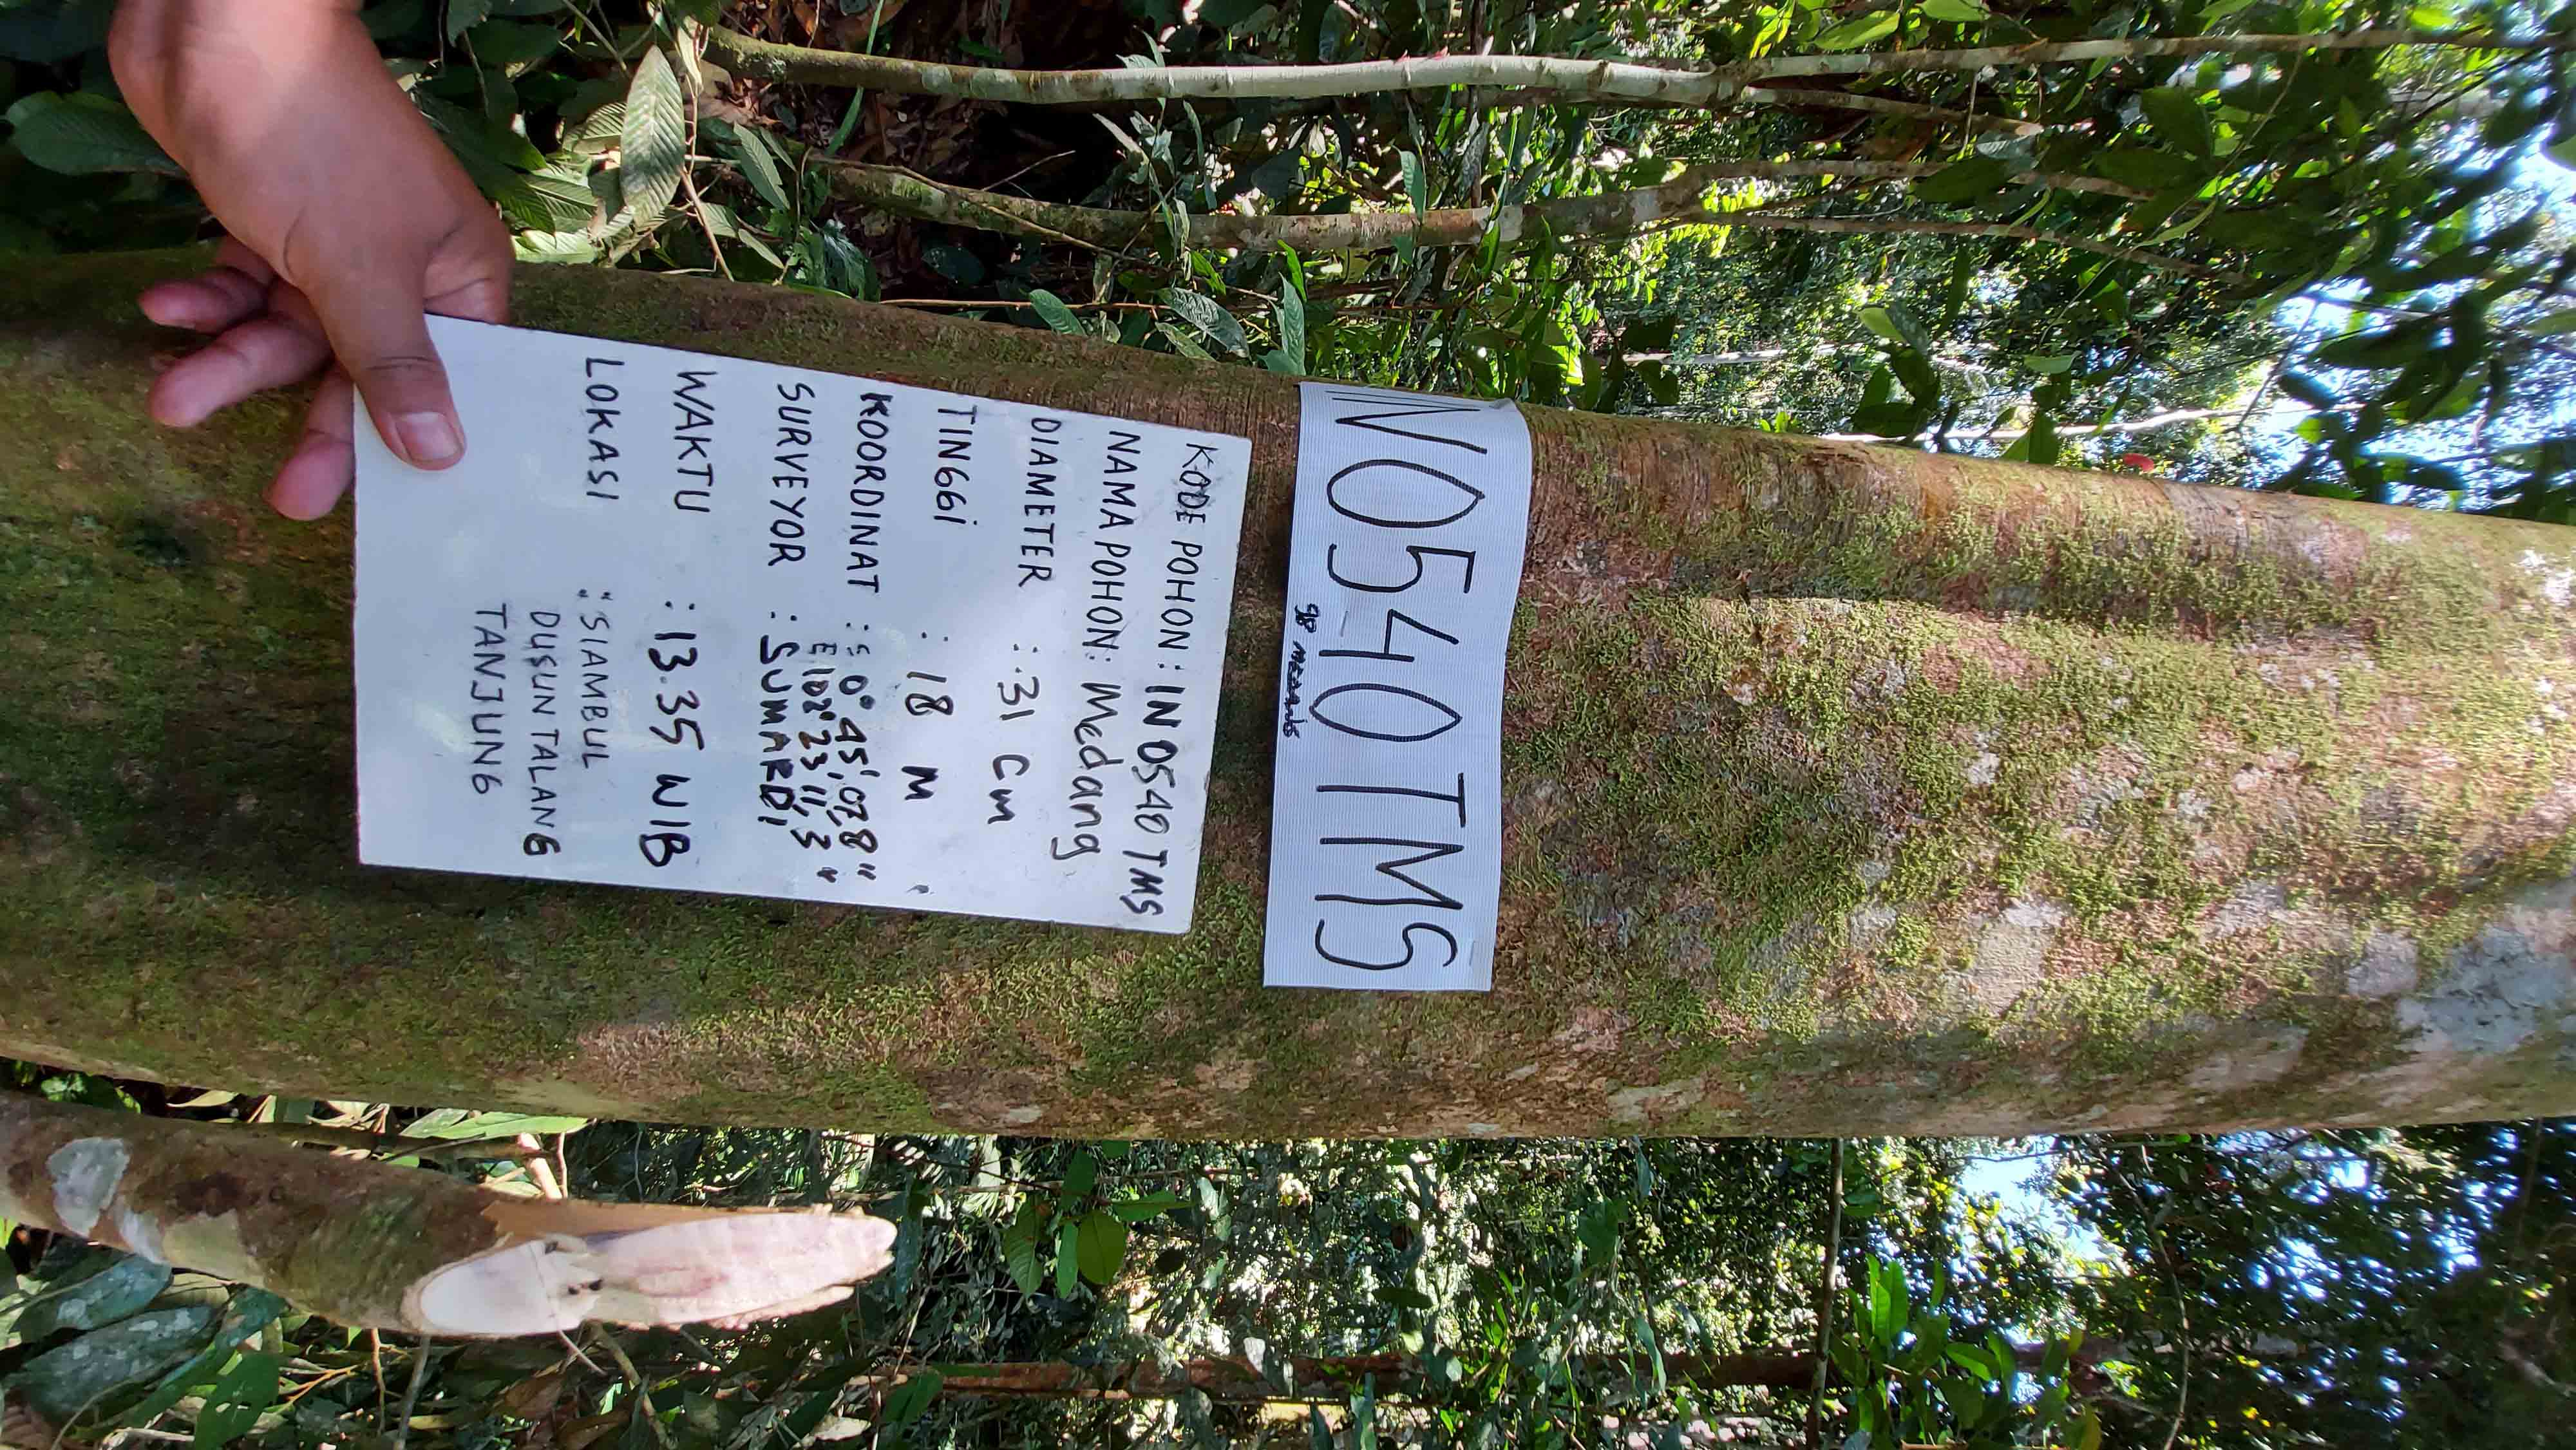 IN0540TMS
98 MEDANG
KODE POHON : IN 0540 TMS
NAMA POHON : Medang
DIAMETER : 31 Cm
TINGGi : 18 M
KOORDINAT : S 0° 45', 07,8"
E 102° 23' 11,3"
SURVEYOR : SUMARDI
WAKTU : 13.35 WIB
LOKASI : SIAMBUL
DUSUN TALANG
TANJUNG